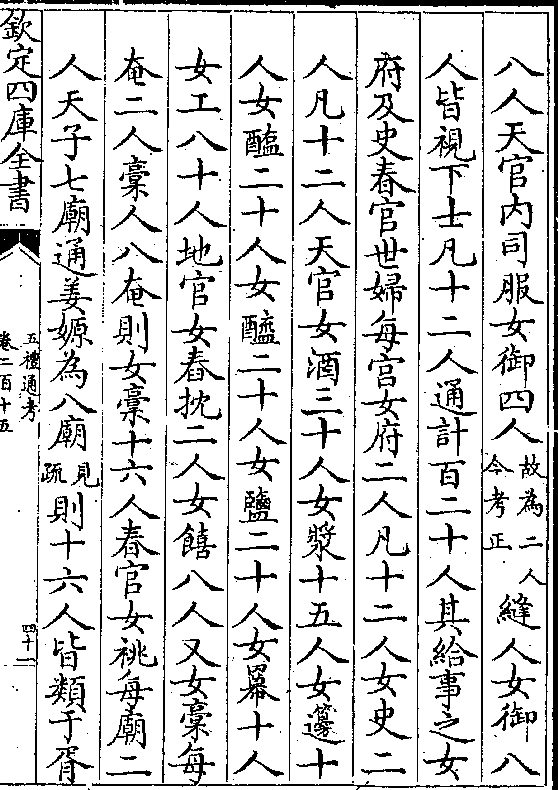 八人天官内司服女御四人故為二人今考正縫人女御八
人皆視下士凡十二人通計百二十人其給事之女
府及史春官世婦每宫女府二人凡十二人女史二
人凡十二人天官女酒三十人女漿十五人女籩十
人女醢二十人女醯二十人女鹽二十人女羃十人
女工八十人地官女舂抌二人女饎八人又女槀每
奄二人槀人八奄則女槀十六人春官女祧每廟二
人天子七廟通姜嫄為八廟見疏則十六人皆類于胥
欽定四庫全書
五禮通考
卷二百十五
四十二